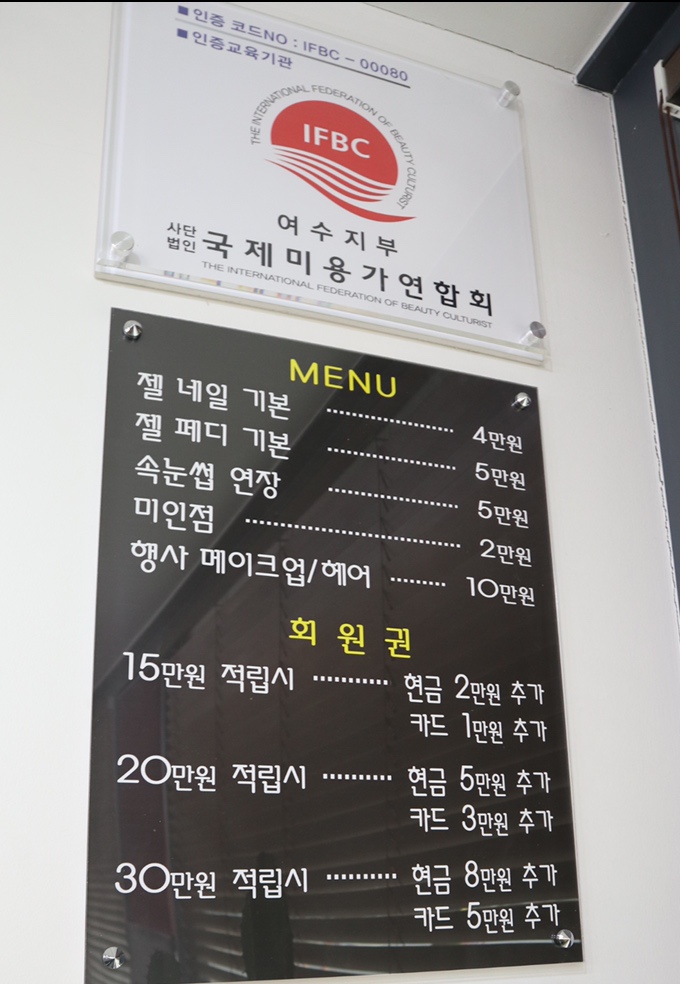 ■인증 코드NO : IFBC - 00080
■인증교육기관
THE INTERNATIONAL FEDERATION OF BEAUTY CULTURIST
IFBC
여수지부
사단
법인 국제미용가연합회
THE INTERNATIONAL FEDERATION OF BEAUTY CULTURIST
MENU
젤 네일 기본 ................ 4만원
젤 페디 기본 ................ 5만원
속눈썹 연장 ................ 5만원
미인점 ........................ 2만원
행사 메이크업/헤어 ........ 10만원
회원권
15만원 적립시 ........... 현금 2만원 추가
카드 1만원 추가
20만원 적립시 .......... 현금 5만원 추가
카드 3만원 추가
30만원 적립시 .......... 현금 8만원 추가
카드 5만원 추가